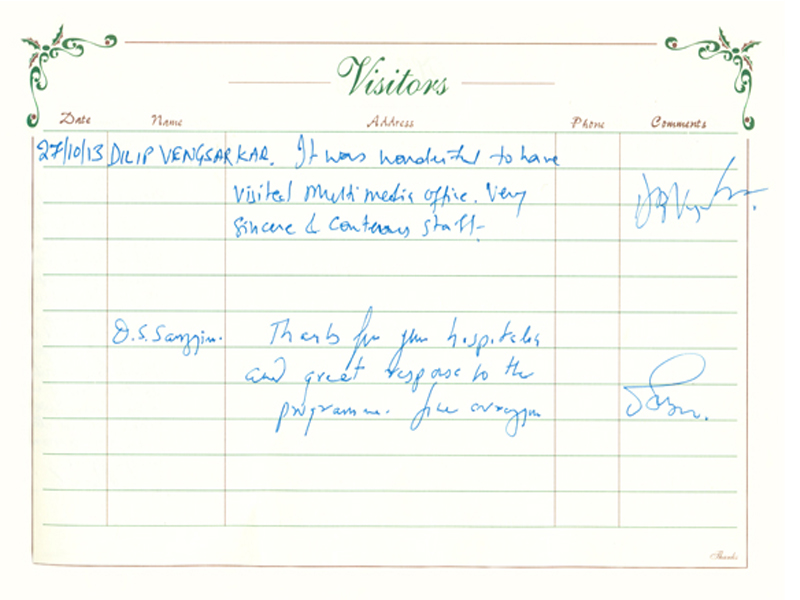 Visitors
Date Name Address Phone Comments
27/10/13 DILIP VENGSARKAR. It was wonderful to have
visited Multimedia office. Very
Sincere & Courteous staff-
D.S.
Thanks for your hospitality
and great response to the
programme. fine
Thanks